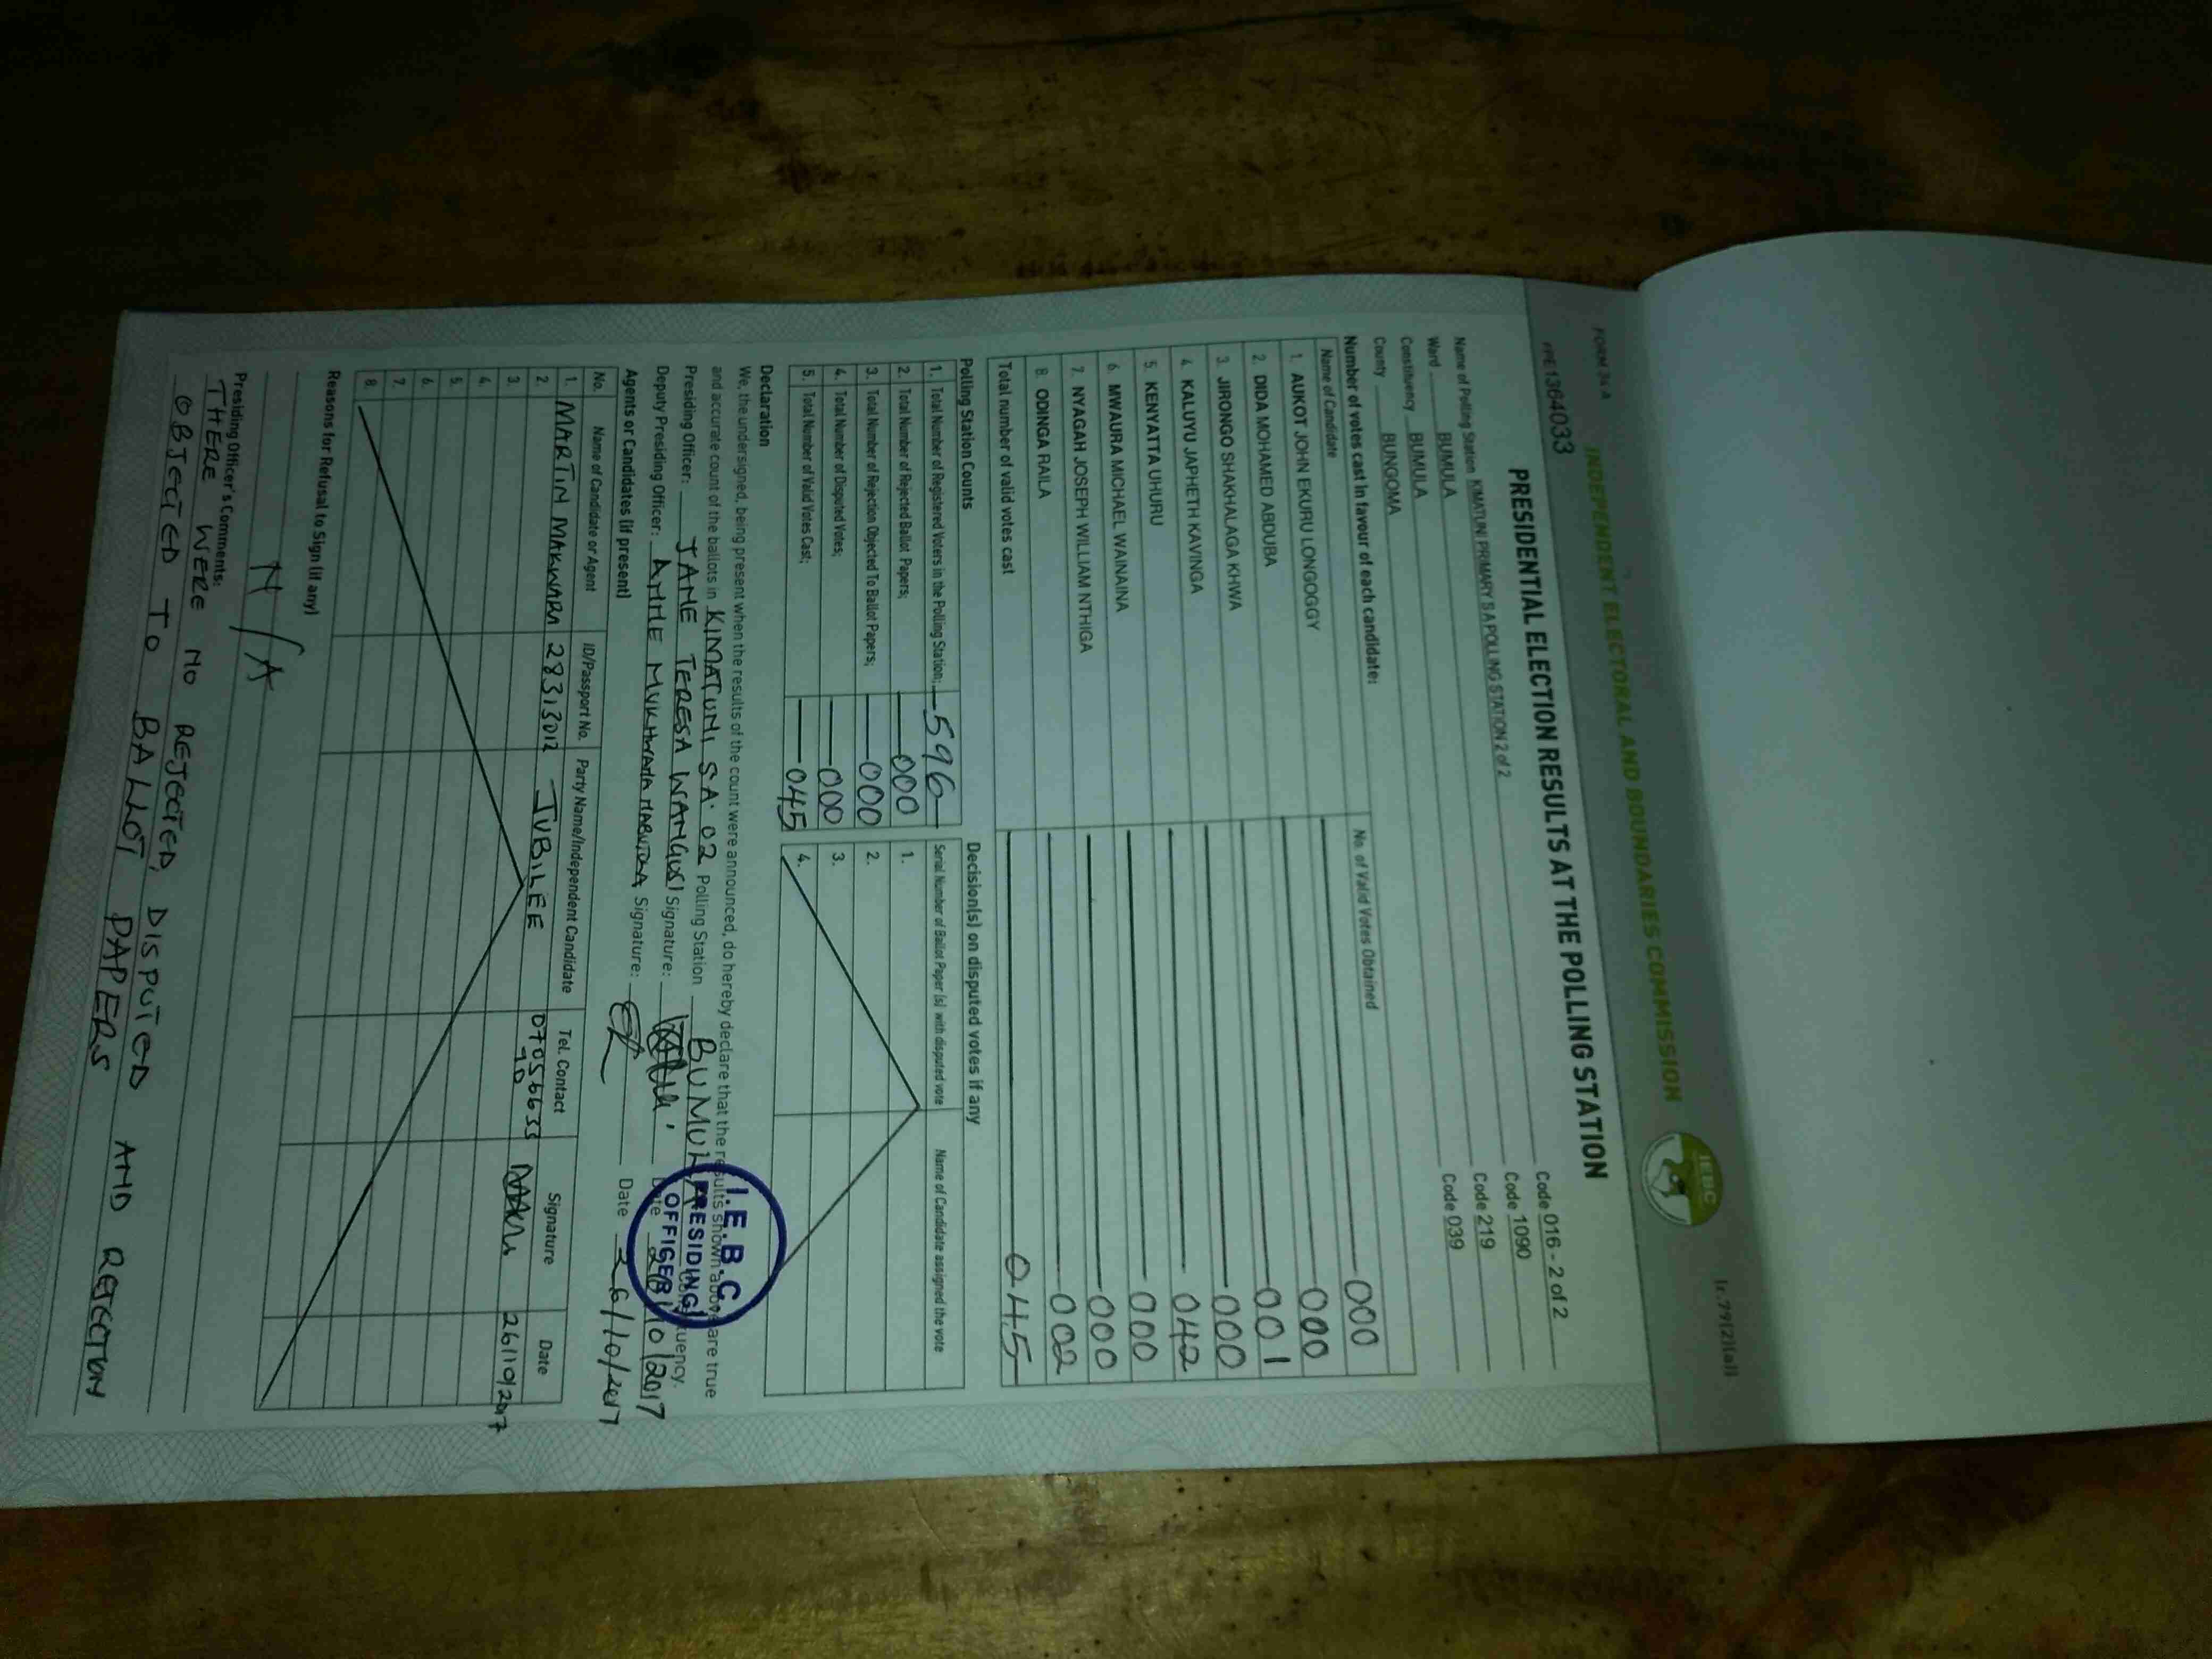 FORM 34 A
(r.79(2)(a))
INDEPENDENT ELECTORAL AND BOUNDARIES COMMISSION
IEBC
PPE1364033
PRESIDENTIAL ELECTION RESULTS AT THE POLLING STATION
Name of Polling Station KIMATUNI PRIMARY S A POLLING STATION 2 of 2 Code 016 - 2 of 2
Ward BUMULA Code 1090
Constituency BUMULA Code 219
County BUNGOMA Code 039
Number of votes cast in favour of each candidate:
Name of Candidate No. of Valid Votes Obtained
1. AUKOT JOHN EKURU LONGOGGY 000
2. DIDA MOHAMED ABDUBA 000
3. JIRONGO SHAKHALAGA KHWA 001
4. KALUYU JAPHETH KAVINGA 000
5. KENYATTA UHURU 042
6. MWAURA MICHAEL WAINAINA 000
7. NYAGAH JOSEPH WILLIAM NTHIGA 000
8. ODINGA RAILA 002
Total number of valid votes cast 045
Polling Station Counts
1. Total Number of Registered Voters in the Polling Station; 596
2. Total Number of Rejected Ballot Papers; 000
3. Total Number of Rejection Objected To Ballot Papers; 000
4. Total Number of Disputed Votes; 000
5. Total Number of Valid Votes Cast; 045
Decision(s) on disputed votes if any
Serial Number of Ballot Paper (s) with disputed vote Name of Candidate assigned the vote
1.
2.
3.
4.
Declaration
We, the undersigned, being present when the results of the count were announced, do hereby declare that the results shown above are true
and accurate count of the ballots in KIMATUNI S.A. 02 Polling Station BUMULA
Presiding Officer: JANE TERESA WANGUSI Signature: Date 26/10/2017
Deputy Presiding Officer: ANNE Signature: Date 26/10/2017
I.E.B.C
PRESIDING
OFFICER
Agents or Candidates (if present)
No. Name of Candidate or Agent ID/Passport No. Party Name/Independent Candidate Tel. Contact Signature Date
1. MARTIN MAKWARA 28313012 JUBILEE 26/10/2017
2.
3.
4.
5.
6.
7.
8.
Reasons for Refusal to Sign (if any)
N/A
Presiding Officer's Comments:
THERE WERE NO REJECTED, DISPUTED AND REJECTION
OBJECTED TO BALLOT PAPERS